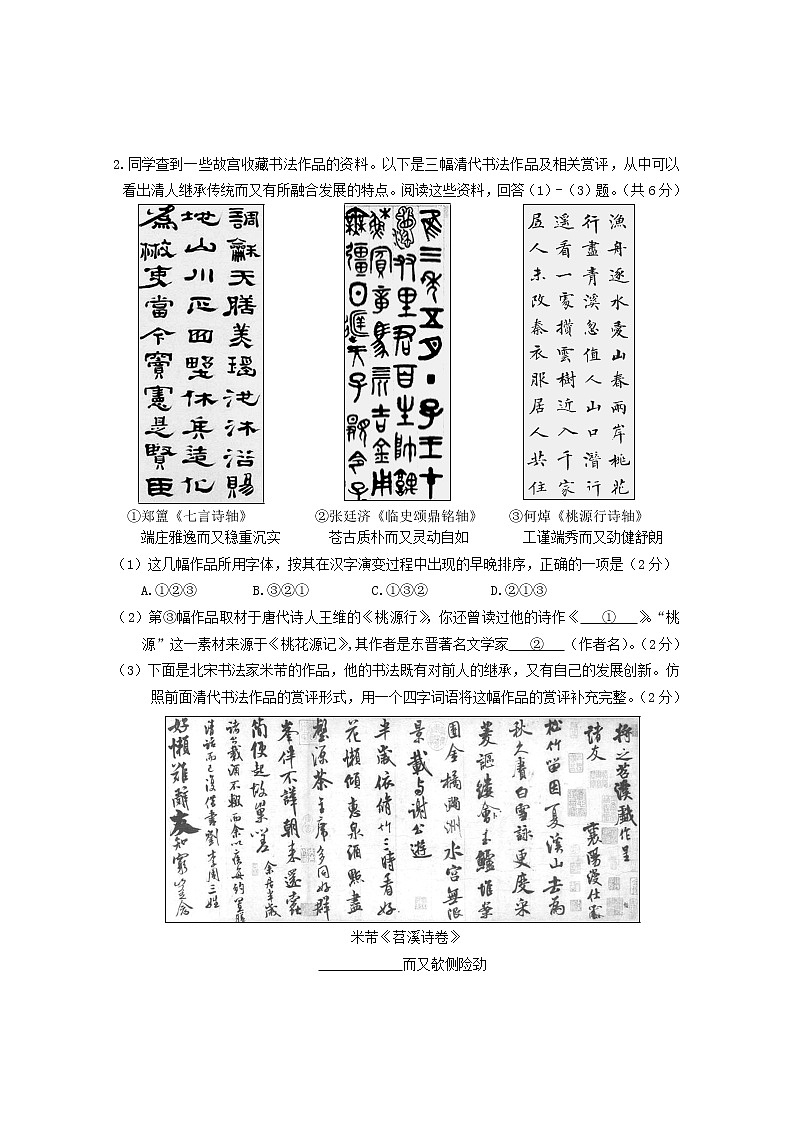 2.同学查到一些故宫收藏书法作品的资料。以下是三幅清代书法作品及相关赏评，从中可以
看出清人继承传统而又有所融合发展的特点。阅读这些资料，回答(1)-(3)题。(共6分)
調龢天膳美瑤池沐浴賜
地山川正四野休兵造化
為檄吏當今寶憲是賢臣
漁舟逐水愛山春兩岸桃花
行盡青溪忽值人山口潛行
遥看一處攢雲樹近入千家
居人未改秦衣服居人共住
①郑簠《七言诗轴》 ②张廷济《临史颂鼎铭轴》 ③何焯《桃源行诗轴》
端庄雅逸而又稳重沉实 苍古质朴而又灵动自如 工谨端秀而又劲健舒朗
(1)这几幅作品所用字体，按其在汉字演变过程中出现的早晚排序，正确的一项是(2分)
A.①②③ B.③②① C.①③② D.②①③
(2)第③幅作品取材于唐代诗人王维的《桃源行》，你还曾读过他的诗作《 ① 》。“桃
源”这一素材来源于《桃花源记》,其作者是东晋著名文学家 ② (作者名)。(2分)
(3)下面是北宋书法家米芾的作品，他的书法既有对前人的继承，又有自己的发展创新。仿
照前面清代书法作品的赏评形式，用一个四字词语将这幅作品的赏评补充完整。(2分)
將之苕溪戲作呈
諸友 襄陽漫仕黻
松竹留因夏溪山去為
秋久賡白雪詠更度采
菱謳縷會玉鱸堆案
團金橘滿洲水宮無限
景載与謝公遊
半歲依脩竹三時看好
花懶傾惠泉酒點盡
壑源茶主席多同好群
峯伴不譁朝來還蠹
簡便起故巢嗟 余居半歲
諸公載酒不輟而余以疾每約置膳
清話而已復借書劉李周三姓
好懶難辭友知窮豈念
米芾《苕溪诗卷》
____而又欹侧险劲